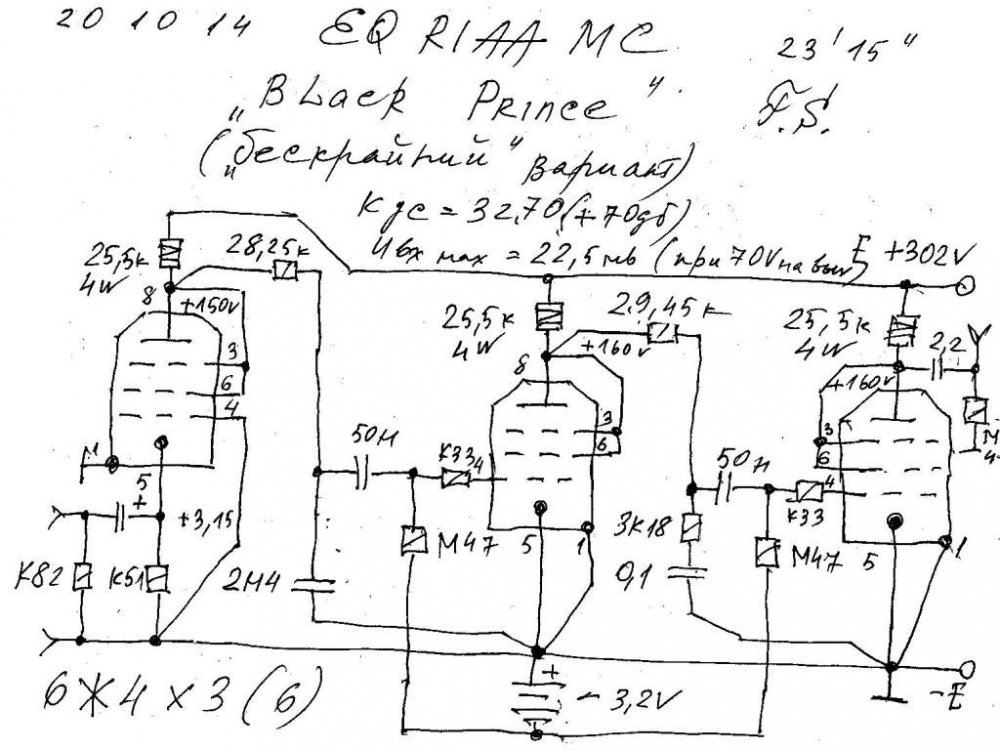 20 10 14
EQ RIAA MC
23' 15"
„Black Prince"
F.S.
(„бескрайний" вариант)
Кдс = 3270 (+70дб)
Uвх max = 22,5 мв (при 70V на вых)
E +302V
25,5к
4W
28,25к
8
+150V
3
6
4
1
5
+
+3,15
К82
К51
2Н4
50Н
К33
4
М47
25,5к
4W
8
+160V
29,45к
3
6
5
1
3К18
0,1
50Н
К33
4
М47
25,5к
4W
+160V
2,2
3
6
5
1
+
- 3,2V
-E
6Ж4 х 3 (6)